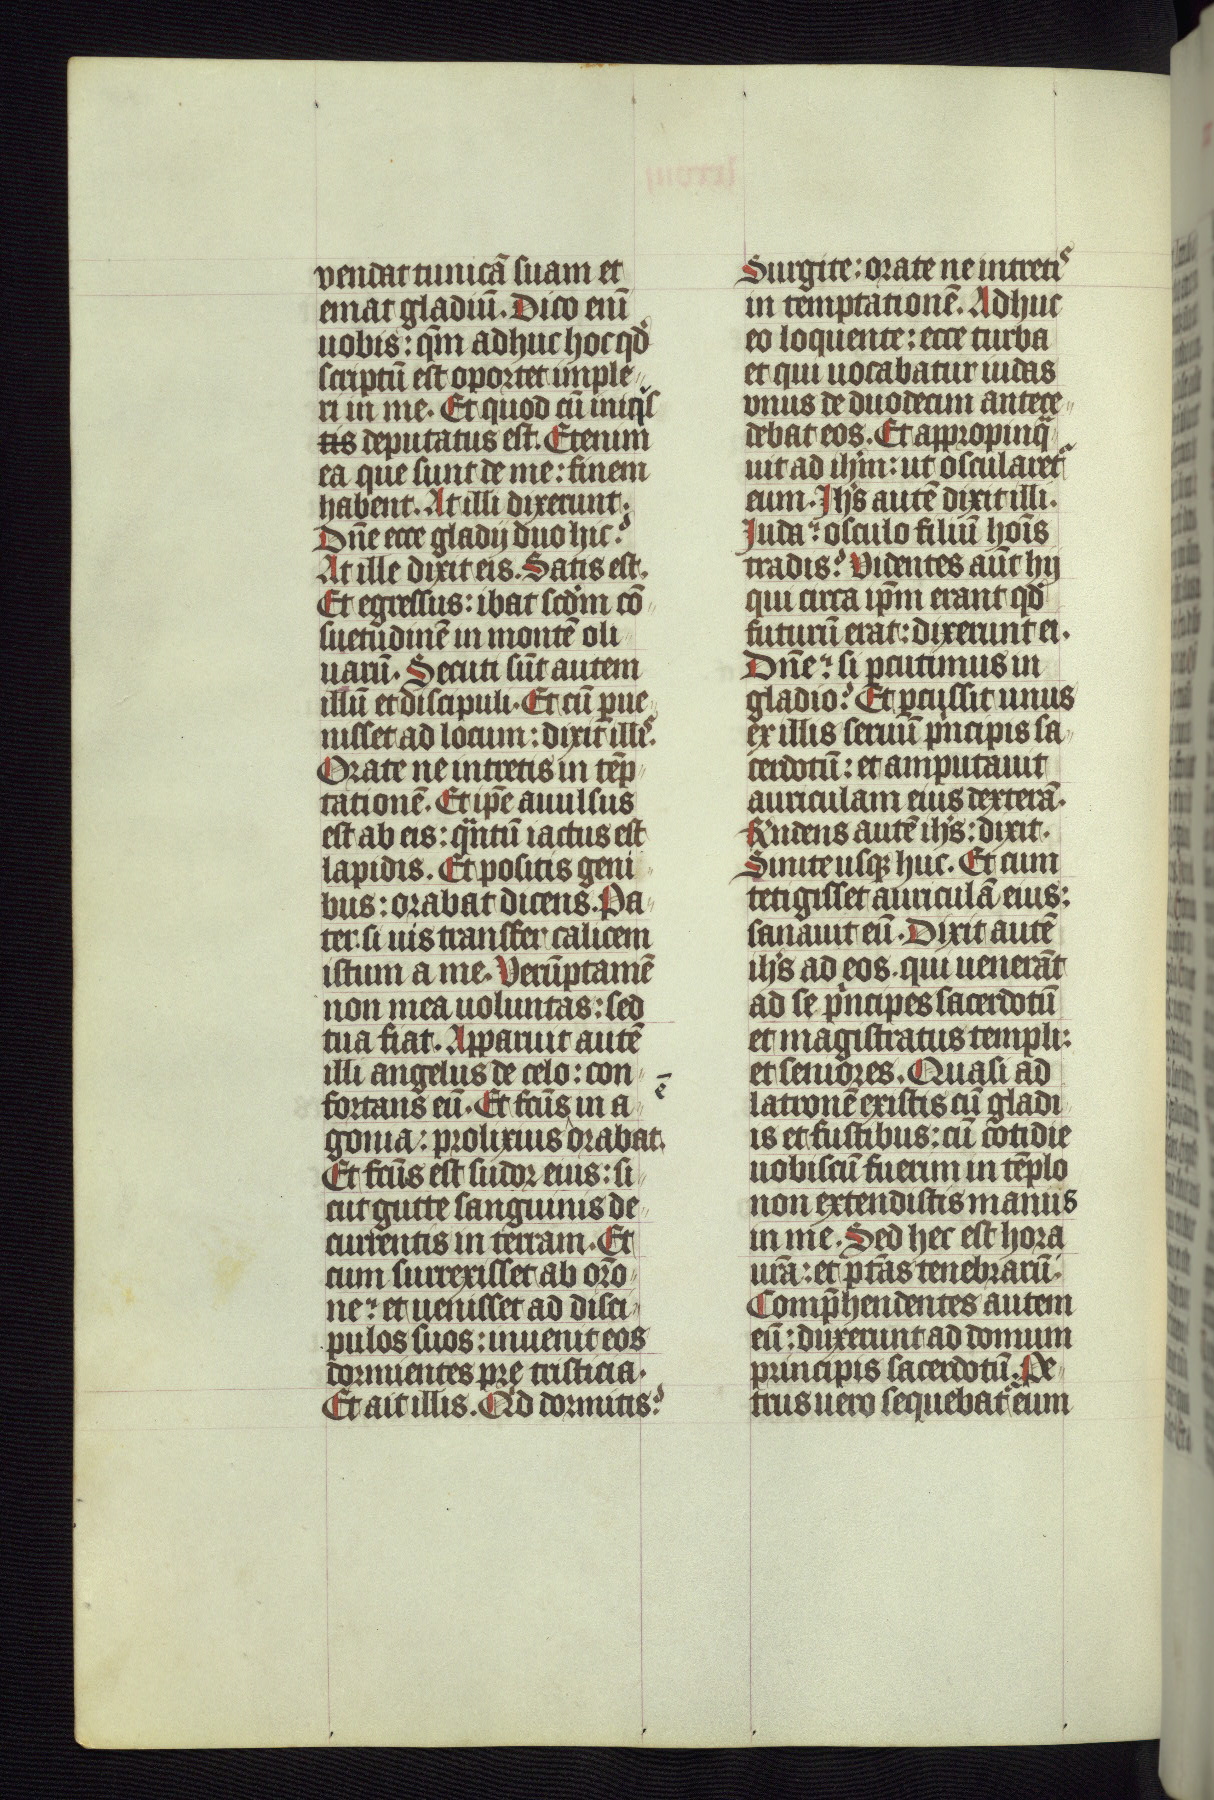 vendat tunicā suam et
emat gladiū. Dico enī
uobis: qm̄ adhuc hoc qd̕
scriptū est oportet imple〃
ri in me. Et quod cū iniqͥs
tis deputatus est. Etenim
ea que sunt de me: finem
habent. At illi dixerunt.
Dn̄e ecce gladij duo hic?
At ille dixit eis. Satis est.
Et egressus: ibat scd̕m cō〃
suetudinē in montē oli〃
uarū. Secuti sūt autem
illū et discipuli. Et cū ꝑue〃
nisset ad locum: dixit illis.
Orate ne intretis in tēp〃
tationē. Et ip̄e auulsus
est ab eis: qͣntū iactus est
lapidis. Et positis geni〃
bus: orabat dicens. Pa〃
ter. si uis transfer calicem
istum a me. Verūptamē
non mea uoluntas: sed
tua fiat. Apparuit autē
illi angelus de celo: con〃
fortans eū. Et fcūs in a〃 ē
gonia: prolixius orabat.
Et fcūs est sudor eius: si〃
cut gutte sanguinis de〃
currentis in terram. Et
cum surrexisset ab orō〃
ne? et uenisset ad disci〃
pulos suos: inuenit eos
dormientes prę tristicia.
Et ait illis. Qͥd dormitis?
Surgite: orate ne intretis
in temptationē. Adhuc
eo loquente: ecce turba
et qui uocabatur iudas
vnus de duodecim antece〃
debat eos. Et appropinqͣ〃
uit ad ihm̄: ut oscularet᷑
eum. Ihs̄ autē dixit illi.
Iuda? osculo filiū hoīs
tradis? Videntes aūt hij
qui circa ip̄m erant qd̕
futurū erat: dixerunt ei.
Dn̄e? si ꝑcutimus in
gladio? Et ꝑcussit unus
ex illis seruū pͥncipis sa〃
cerdotū: et amputauit
auriculam eius dexterā.
Rn̄dens autē ihs̄: dixit.
Sinite usqꝫ huc. Et cum
tetigisset auriculā eius:
sanauit eū. Dixit autē
ihs̄ ad eos. qui uenerāt
ad se pͥncipes sacerdotū
et magistratus templi:
et seniores. Quasi ad
latronē existis cū gladi〃
is et fustibus: cū cōtidie
uobiscū fuerim in tēplo
non extendistis manus
in me. Sed hec est hora
ur̄a: et ptās tenebrarū.
Comp̄hendentes autem
eū: duxerunt ad domum
principis sacerdotū. Pe〃
trus uero sequebat᷑ eum